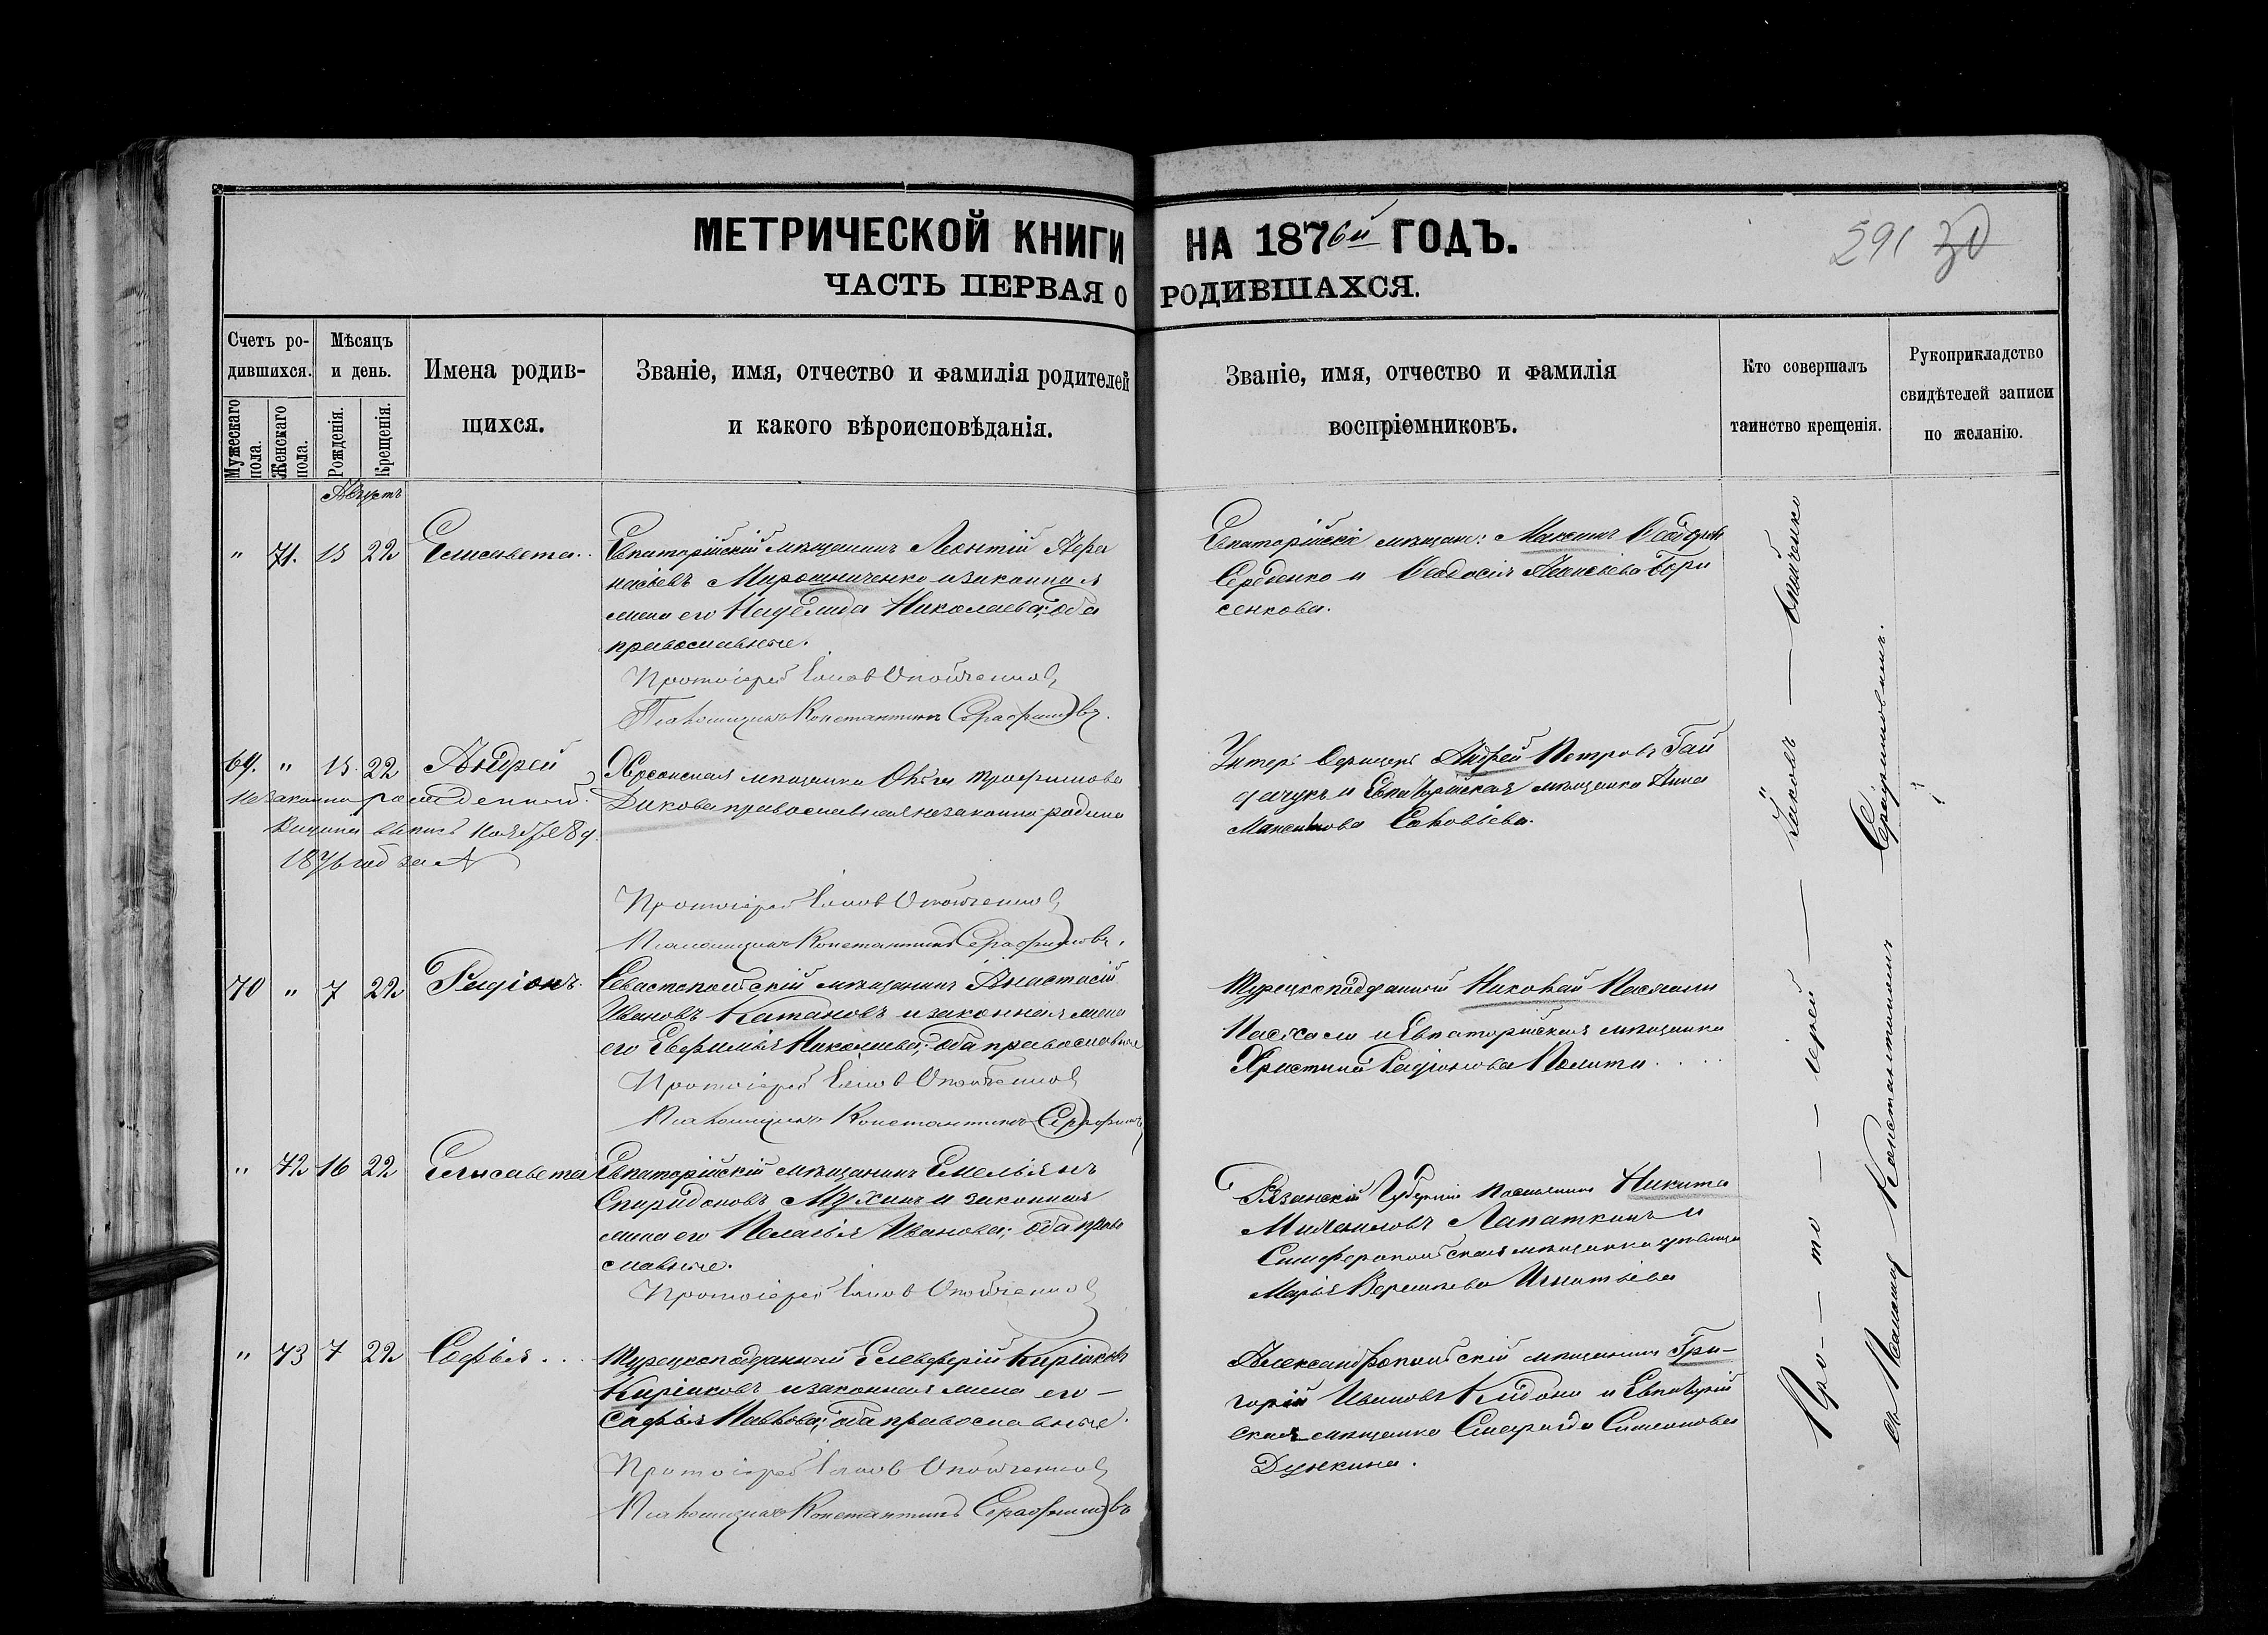 МЕТРИЧЕСКОЙ КНИГИ НА 1876й ГОДЪ.
ЧАСТЬ ПЕРВАЯ О РОДИВШАХСЯ.
291 30
Счетъ родившихся.
Мужескаго пола.
Женскаго пола.
Мѣсяцъ и день.
Рожденія.
Крещенія.
Имена родив-
щихся.
Званіе, имя, отчество и фамилія родителей
и какого вѣроисповѣданія.
Званіе, имя, отчество и фамилія
воспріемниковъ.
Кто совершалъ
таинство крещенія.
Рукоприкладство
свидѣтелей записи
по желанію.
Августъ
" 71. 15 22 Елисавета.
Евпаторійскій мѣщанинъ Леонтій Афа
насіевъ Мирошниченко и законная
жена его Надежда Николаева; оба
православные.
Протоіерей Іаковъ
Псаломщикъ Константинъ Серафимовъ.
Евпаторійскіе мѣщан: Максимъ Ѳеодоровъ
Середенко и Ѳеодосія Алексѣева Бори
сенкова.
69. " 15 22 Андрей
незаконно рожденный.
1876 год за №
Херсонская мѣщанка Ольга Трофимова
Дикова православная незаконно родила
Протоіерей Іаковъ
Псаломщикъ Константинъ Серафимовъ.
Унтеръ Офицеръ Андрей Петровъ Гай
дачукъ и Евпаторійская мѣщанка Анна
Максимова Соловьева.
70 " 7 22 Радіонъ.
Севастопольскій мѣщанинъ Анастасій
Ивановъ Катановъ и законная жена
его Евфимія Николаева; оба православные
Протоіерей Іаковъ
Псаломщикъ Константинъ Серафимовъ
Турецкоподданный Николай
Пасхали и Евпаторійская мѣщанка
Христина Радіонова Полити
" 72 16 22 Елисавета
Евпаторійскій мѣщанинъ Емельянъ
Спиридоновъ Мухинъ и законная
жена его Пелагія Иванова; оба право
славные.
Протоіерей Іаковъ
Рязанскій Губерніи Никита
Михаиловъ Лапаткинъ и
Симферопольская мѣщанка дѣвица
Марія Игнатьева
" 73 7 22 Софія
Турецкоподданный Елевферій Киріаковъ
Киріаковъ и законная жена его
Софія Павлова; оба православные.
Протоіерей Іаковъ
Псаломщикъ Константинъ Серафимовъ
Александропольскій мѣщанинъ Гри-
горій Ивановъ Кидони и Евпаторій
ская мѣщанка Смарагда Симеонова
Дункина.
Про- то - іерей - Іаковъ
съ Псаломщ Константиномъ Серафимовымъ.